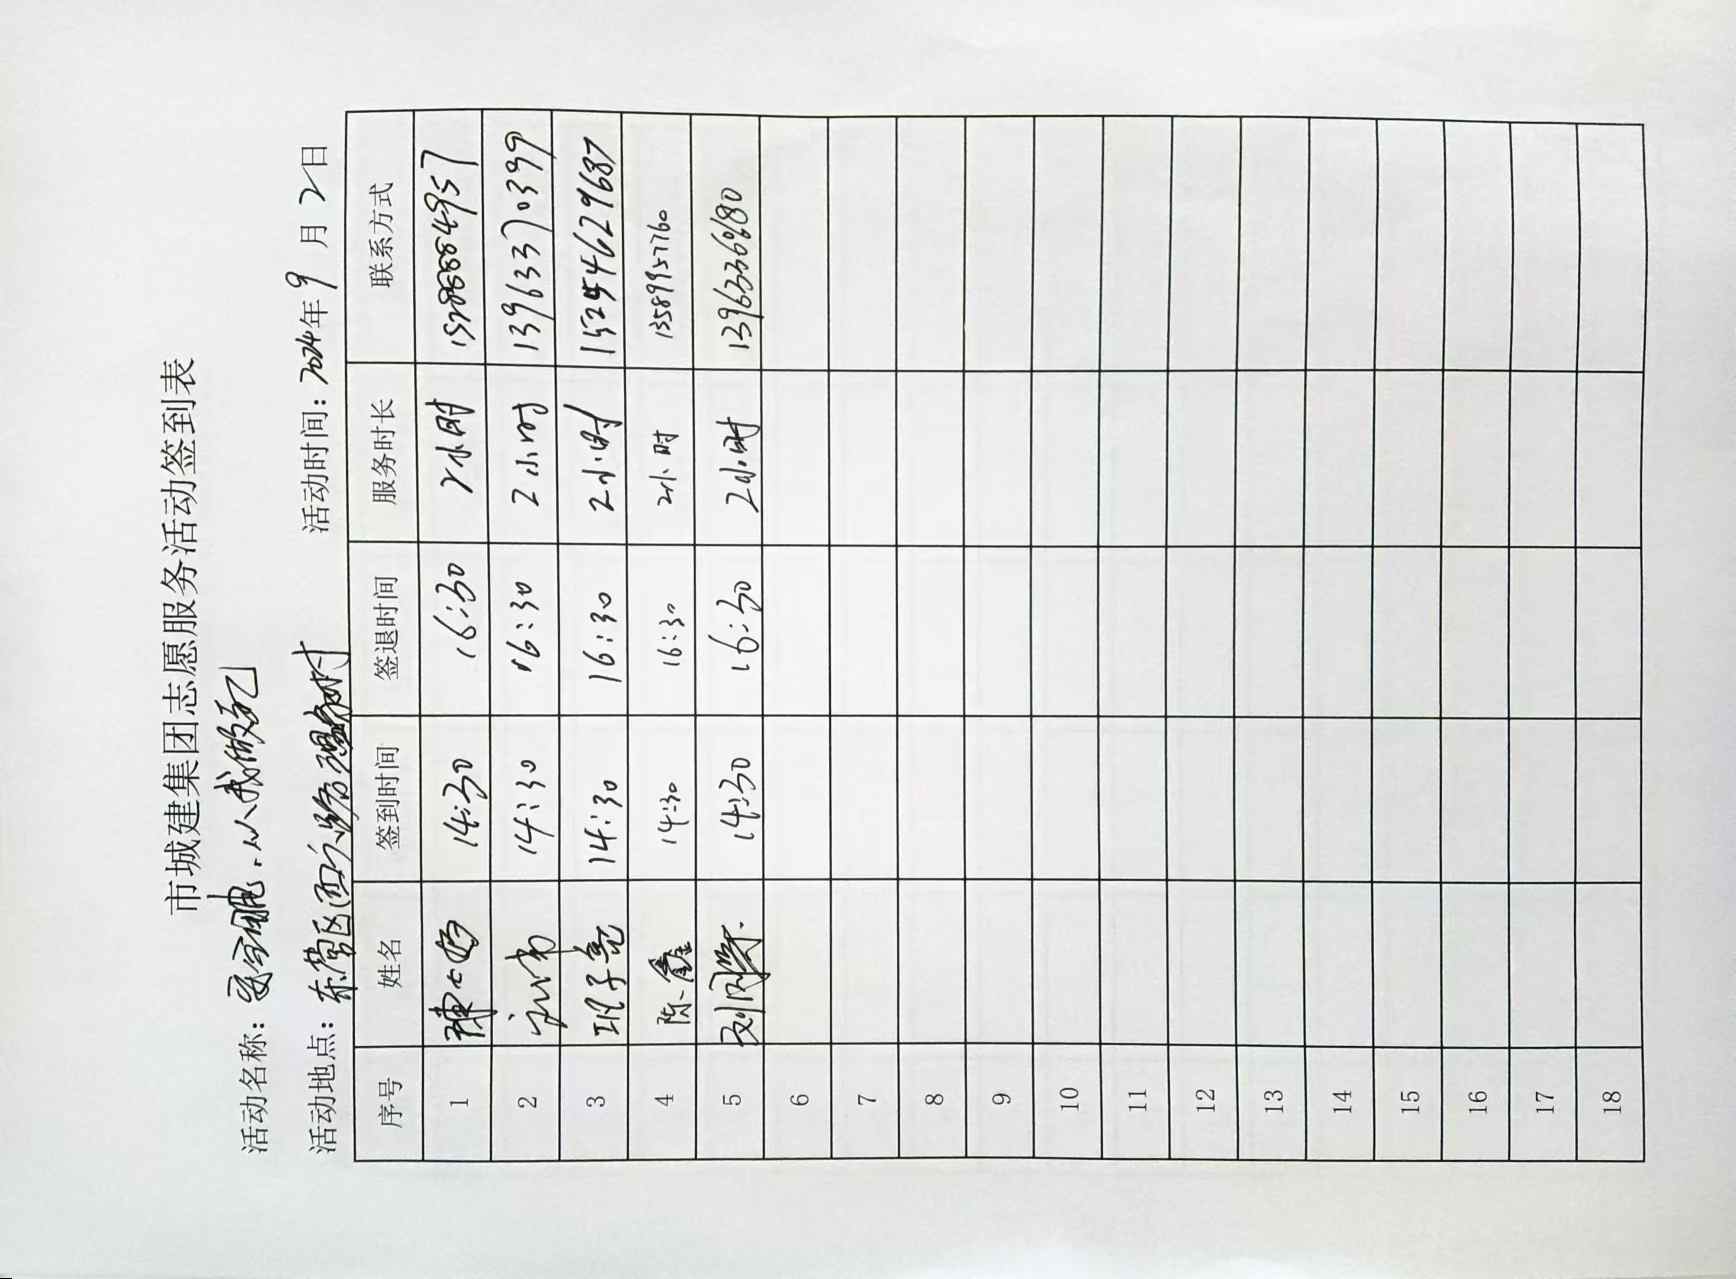 市城建集团志愿服务活动签到表
活动名称：安全用电，从我做起
活动地点：东营区西六路 活动时间：2024年9月2日
序号 姓名 签到时间 签退时间 服务时长 联系方式
1 14:30 16:30 2小时
2 14:30 16:30 2小时 13963370399
3 14:30 16:30 2小时 15254629687
4 陈鑫 14:30 16:30 2小时 13589957760
5 14:30 16:30 2小时
6
7
8
9
10
11
12
13
14
15
16
17
18